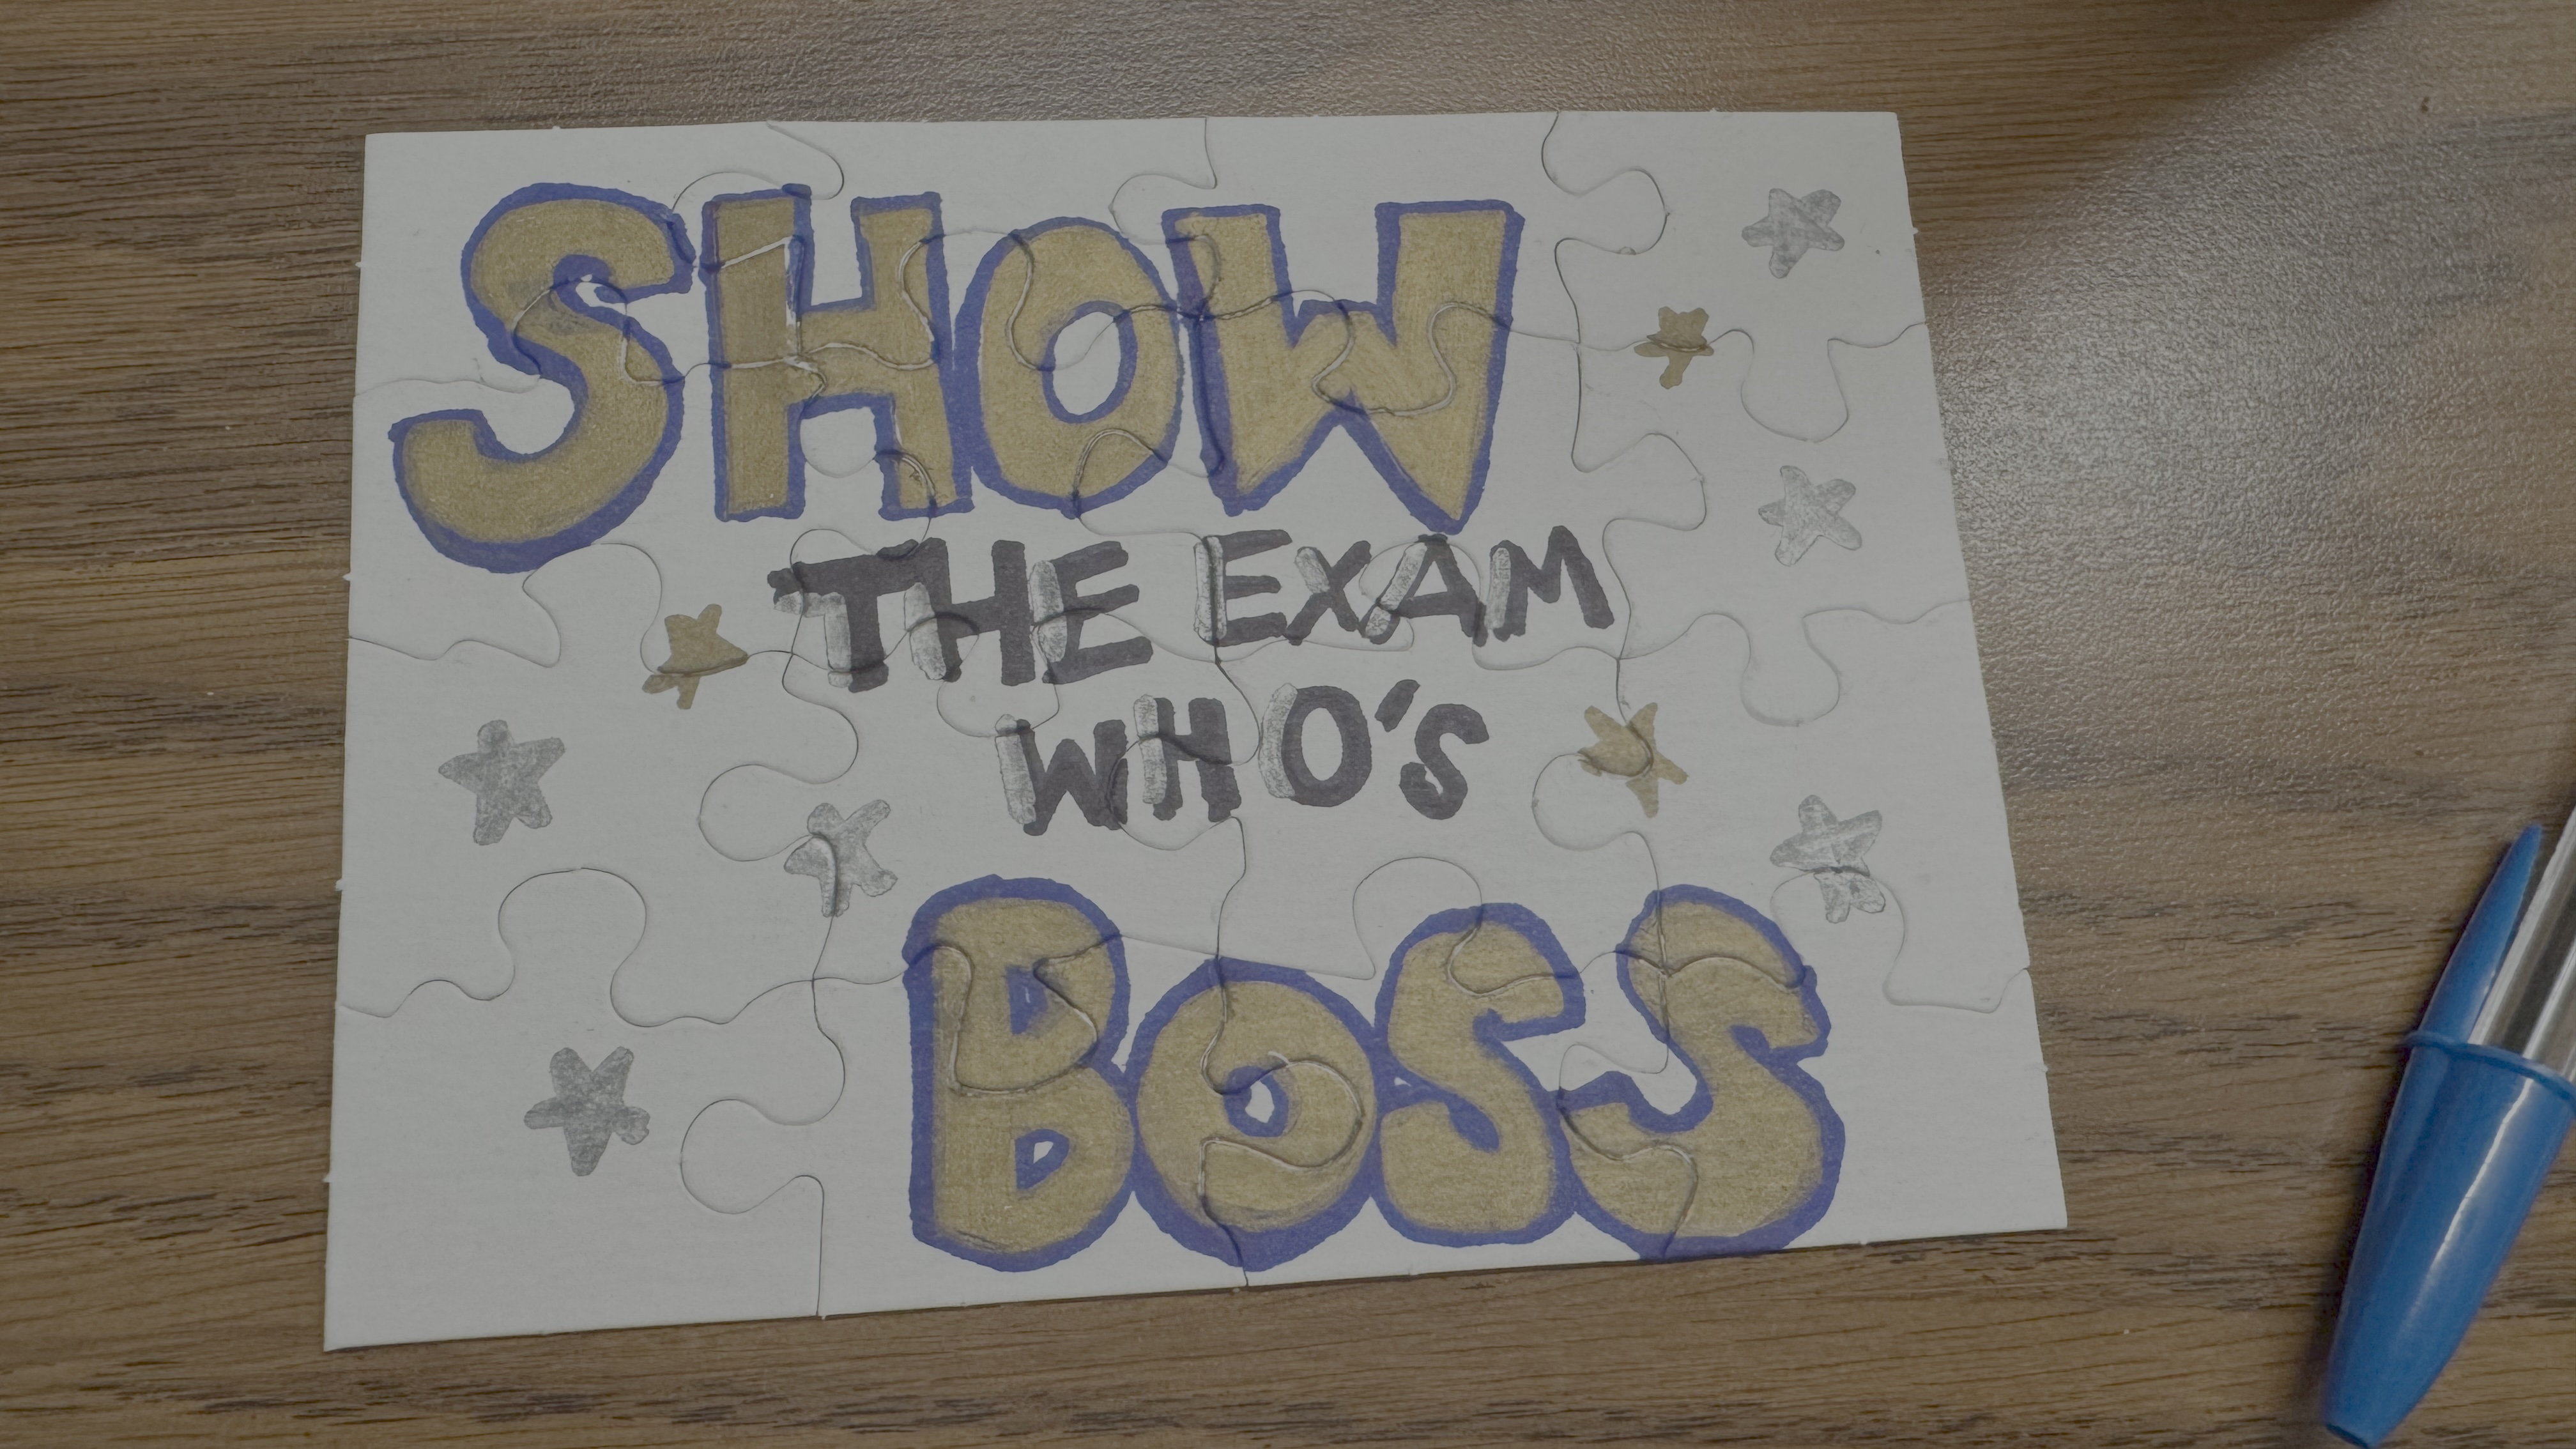 SHOW
THE EXAM
WHO'S
BOSS